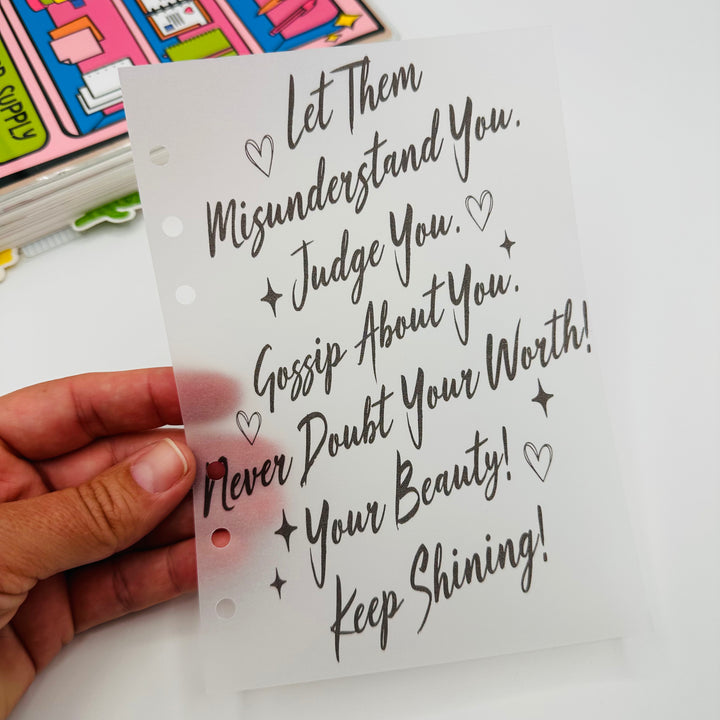 Let Them
Misunderstand You.
Judge You.
Gossip About You.
Never Doubt Your Worth!
Your Beauty!
Keep Shining!
SUPPLY